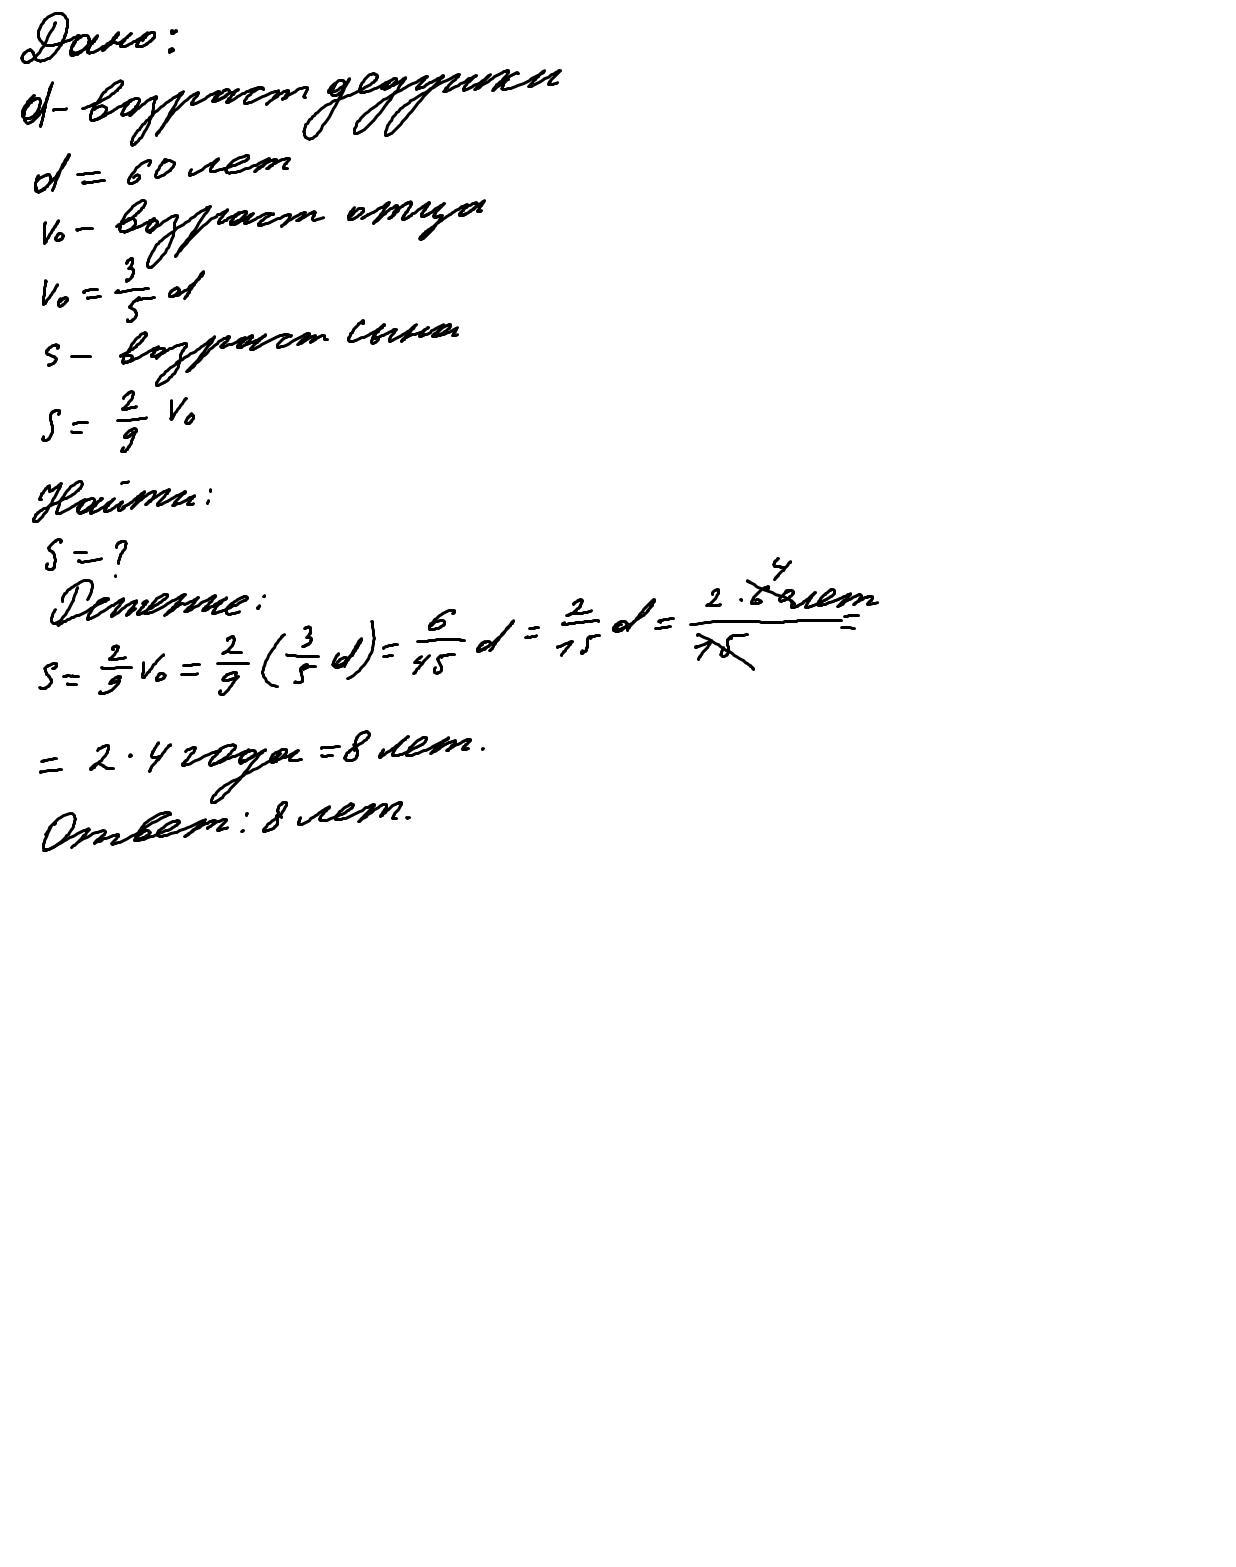 Дано:
d - возраст дедушки
d = 60 лет
v₀ - возраст отца
v₀ = 3/5 d
s - возраст сына
s = 2/9 v₀
Найти:
s = ?
Решение:
s = 2/9 v₀ = 2/9 (3/5 d) = 6/45 d = 2/15 d = 2 · 60 лет / 15 =
4
= 2 · 4 года = 8 лет.
Ответ: 8 лет.